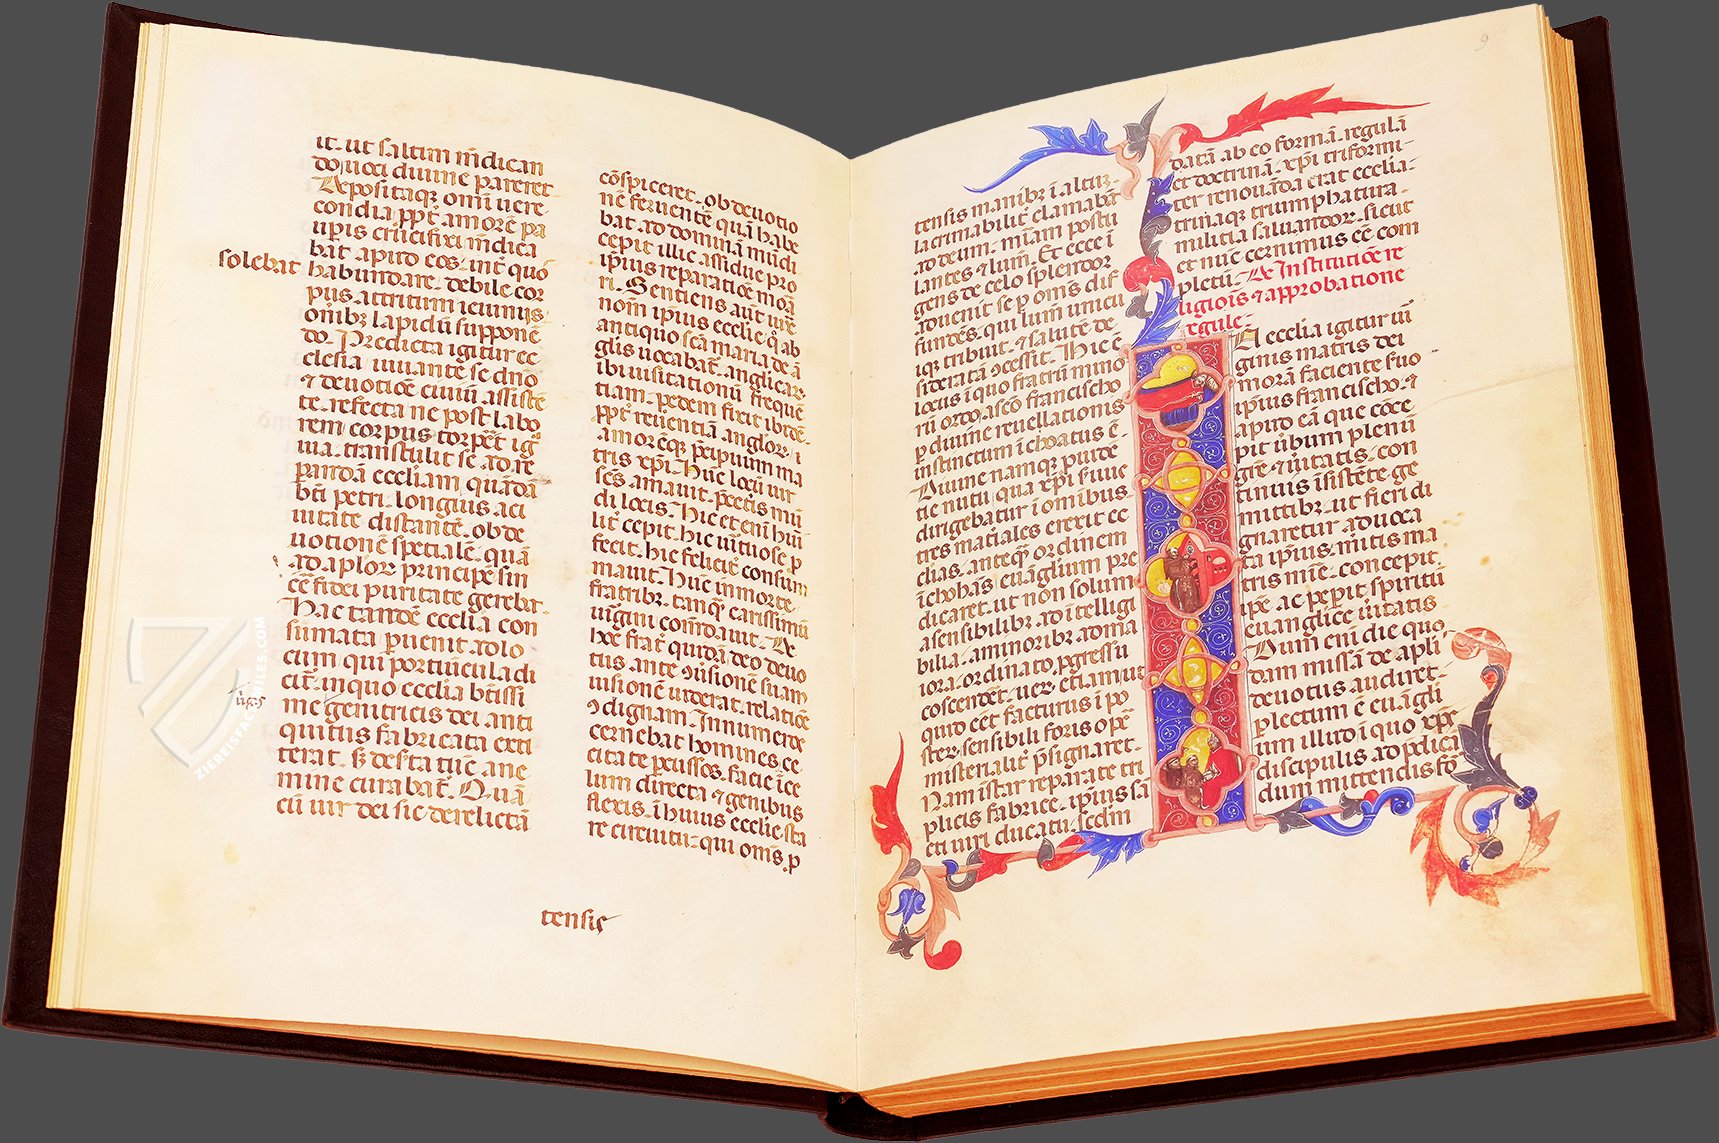 it. ut saltim mēdican
do uoci diuine pareret
Depositaqꝫ omī uere
condia ꝓpt̄ amorē pa
uꝑis crucifixi mēdica
bat apud eos: int̄ quos
solebat habundare. debile cor
pus attritum ieiuniis
om̄ibꝫ lapidū suppone
do. Predicta igitur ec
clesia iuuante se dn̄o
⁊ deuotiōe ciuiū assistē
te. refecta ne post labo
rem corpus torpēt igr̄
uia. transtulit se ad re
parādā eccliam quādā
bt̄i petri. longius a ci
uitate distantē. ob de
uotionē specialē. quā
ad apl̄oꝝ principē sin
cē fidei puritate gerebat.
Hac tandē ecclia con
sumata ꝑuenit ad lo
cum qui portiuncula di
cit̄. in quo ecclia btissi
uirg̅
me genitricis dei anti
quitus fabricata exti
terat. sꝫ deserta tūc a ne
mine curabat̄. Quā
cū uir dei sic derelictā
cōspiceret. ob deuotio
nē feruentē quā habe
bat ad dominā mūdi
cepit illic assidue pro
ipius reparatiōe mora
ri. Sentiens aūt iuxta
nom̄ ipius ecclie q̄ ab
antiquo sc̄a maria de ā
glis uocabat̄. anglicaꝝ
ibi uisitationū freque
tiam. pedem fixit ibidē.
ꝓpt̄ reuerentiā angloꝝ. ⁊
amorēqꝫ p̄cipuum ma
tris xp̄i. Hūc locū uir
sc̄s amauit. p̄ ceteris mū
di locis. Hic et enī hūi
lit̄ cepit. hic uirtuose ꝓ
fecit. hic felicit̄ consum
mauit. hūc in morte.
fratribꝫ. tanqꝫ carissimū
uirgini com̄dauit. De
hoc frat̄ quidā deo deuo
tus ante ꝯuisionē suam
uisionē uiderat. relatiōe
ꝯdignam. Innumeros
cernebat homines ce
citate ꝑcussos. facie ī ce
lum directa ⁊ genibus
flexis. ī huius ecclie sta
re circuitu: qui om̄s. ꝓ
tensis
9
tensis manibꝫ ī altū.
lacrimabilit̄ clamabāt
ad deum. miām postu
lantes ⁊ lum̄. Et ecce ī
gens de celo splendor
aduenit se ꝑ om̄s dif
fundēs. qui lum̄ unicui
iqꝫ tribuit. ⁊ salutē de
sideratā ꝯcessit. Hic ē
locus ī quo fratrū mino
rū ordo. a scō francischo
ꝑ diuine reuelationis
instinctum īchoatus ē.
Diuine namqꝫ ꝓuidē
tie nutu. qua xp̄i seruus
dirigebatur ī omibus
tres mat̄iales erexit ec
clias. anteqꝫ ordinem
īchoās euāglium pre
dicaret. ut non solum
a sensibilibꝫ ad ītelligi
bilia. a minoribꝫ ad ma
iora. ordinato ꝓgressu
coscendet. ueꝝ etiam ut
quid eēt facturus ī po
ster. sensibili foris ope
misterialit̄ p̄signaret.
Nam istar reparate tri
plicis fabrice. ipius sā
cti uiri ducatu. scdm
datā ab eo formā. regulā
et doctrinā. xp̄i triformi
ter renouāda erat ecclia:
trinaqꝫ triumphatura.
militia saluandoꝝ. sicut
et nūc cernimus eē com
pletū. De Institutiōe re
ligiōis ⁊ approbatione
regule:
In ecclia igitur uir
ginis matris dei
morā faciente suo
ipius francischo. ⁊
apud eā que cōce
pit u̇bum plenū
gr̄e. ⁊ uitatis. con
tinuis īsistēte ge
mitibꝫ. ut fieri di
gnaretur aduoca
ta ipius. mitis ma
tris mīe. concepit.
ip̄e ac peperit spiritū
euanglice ūitatis
Dum enī die quo
dam missā de apl̄i
deuotus audiret.
ꝑlectum ē euāgli
um illud ī quo xp̄c
discipulis ad p̄dicā
dum mittendis fo